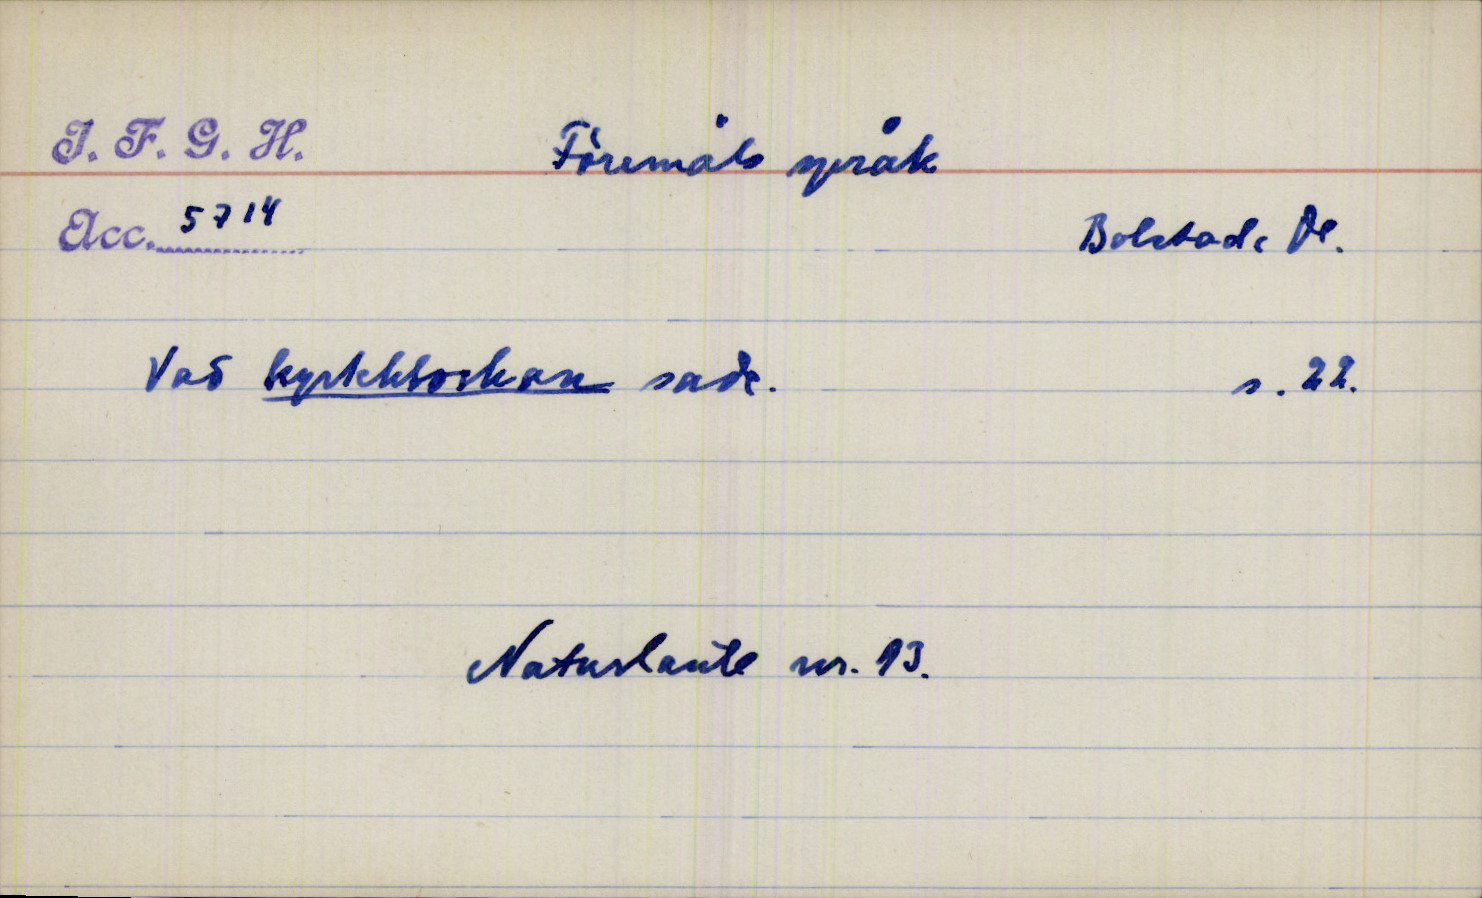 I. F. G. H.
Föremåls språk
Acc. 5714
Bolstads Dl.
Vad kyrkklockan sade. s. 22.
Naturlaute nr. 13.